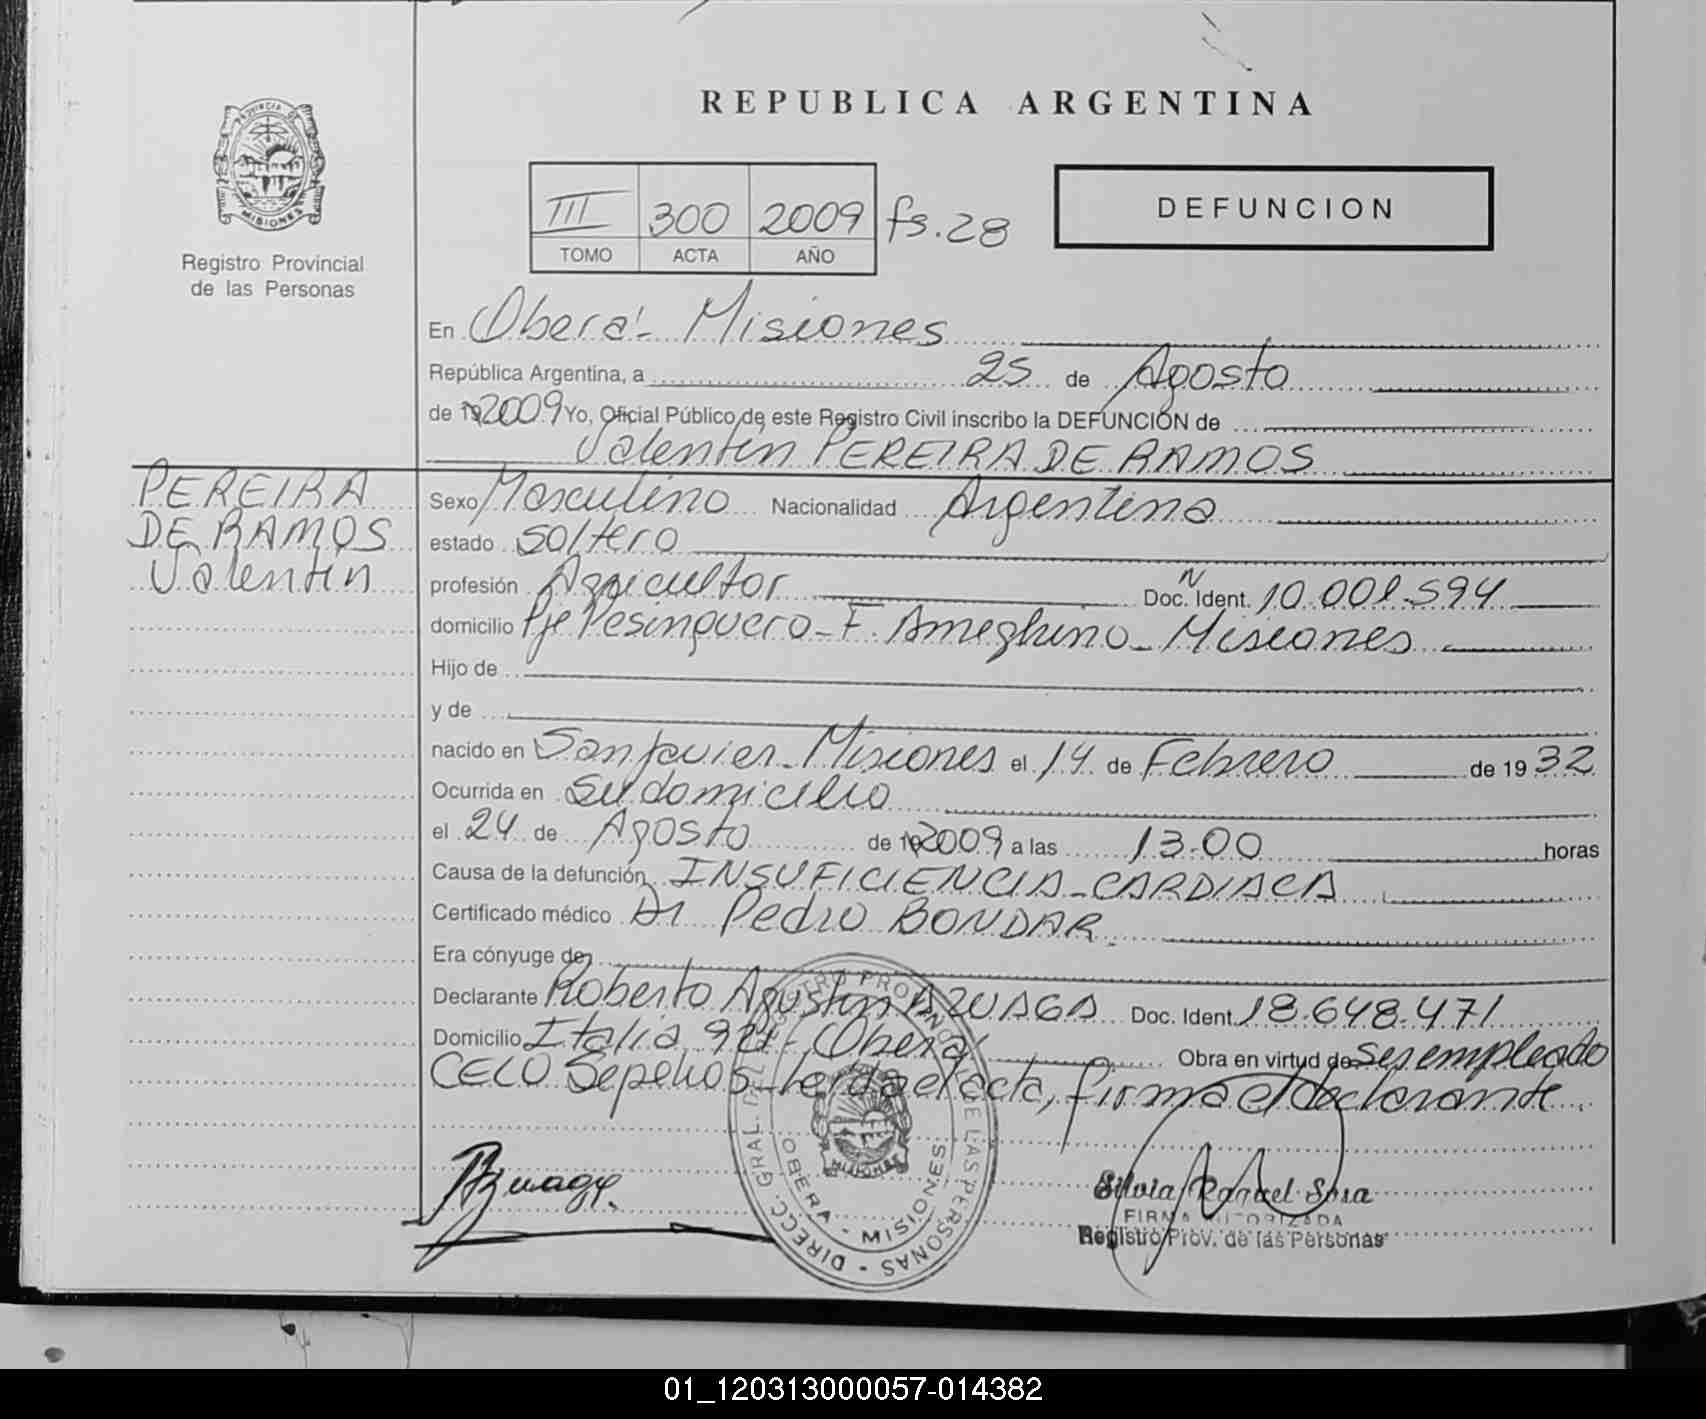 REPUBLICA ARGENTINA
PROVINCIA DE
MISIONES
Registro Provincial
de las Personas
III 300 2009 fs. 28
TOMO ACTA AÑO
DEFUNCION
En Oberá - Misiones
República Argentina, a 25 de Agosto
de 2009 Yo, Oficial Público de este Registro Civil inscribo la DEFUNCIÓN de
Valentin PEREIRA DE RAMOS
PEREIRA
DE RAMOS
Valentin
Sexo Masculino Nacionalidad Argentina
estado Soltero
profesión Agricultor Doc. N Ident. 10.001.594
domicilio Pje Pesinguero - F. Ameghino - Misiones
Hijo de
y de
nacido en San Javier - Misiones el 14 de Febrero de 1932
Ocurrida en Su domicilio
el 24 de Agosto de 2009 a las 13.00 horas
Causa de la defunción INSUFICIENCIA - CARDIACA
Certificado médico Dr. Pedro BONDAR
Era cónyuge de
Declarante Roberto Agustin AZUAGA Doc. Ident. 18.648.471
Domicilio Italia 921 - Oberá Obra en virtud de ser empleado
CELO Sepelios - Leida el acta, firma el declarante
Azuaga
DIRECC. GRAL. DEL REGISTRO PROVINCIAL DE LAS PERSONAS
MISIONES
OBERA - MISIONES
Silvia Raquel Sosa
FIRMA AUTORIZADA
Registro Prov. de las Personas
01_120313000057-014382